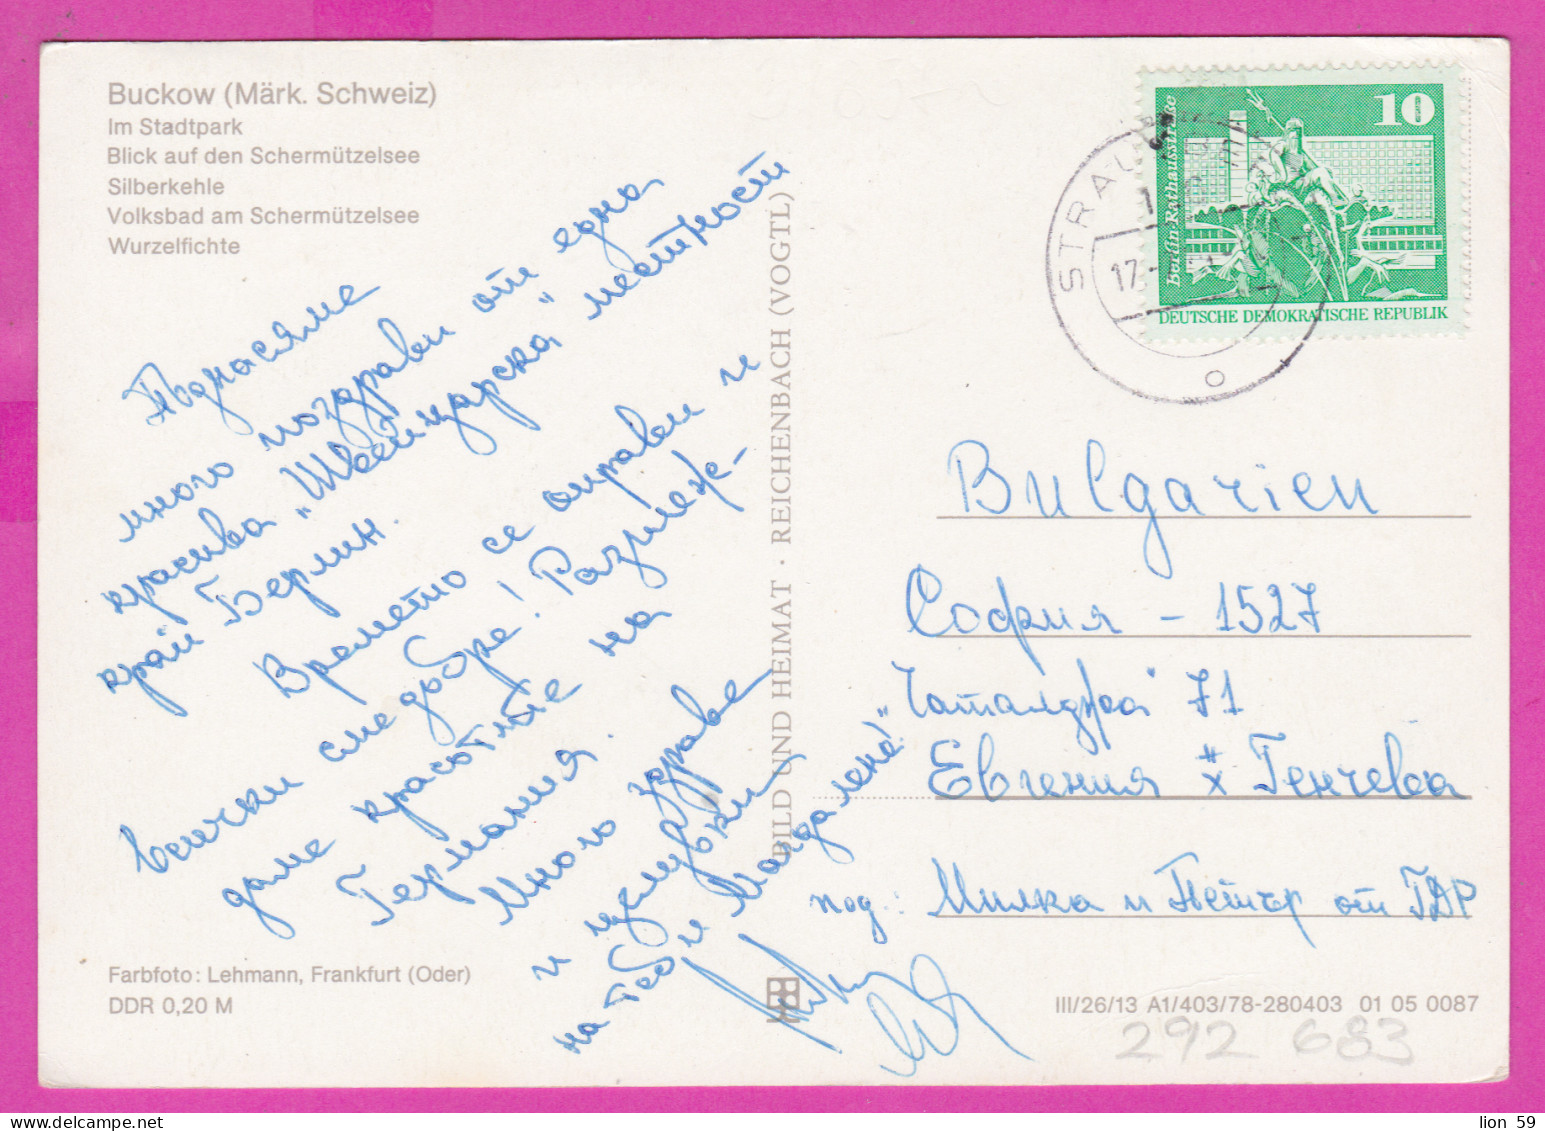 Buckow (Märk. Schweiz)
Im Stadtpark
Blick auf den Schermützelsee
Silberkehle
Volksbad am Schermützelsee
Wurzelfichte
Поднасяме
много поздрави от една
красива „Швейцарска" местност
край Берлин.
Времето се оправи и
всички сме добре! Разглеж-
даме красотите на
Германия.
Много здраве
и целувки
на теб и Магдалена!
Farbfoto: Lehmann, Frankfurt (Oder)
DDR 0,20 M
BILD UND HEIMAT · REICHENBACH (VOGTL)
10
Berlin-Rathausstraße
DEUTSCHE DEMOKRATISCHE REPUBLIK
STRAU
17
Bulgarien
София - 1527
„Чаталджа" 71
Евгения Генчева
под.: Милка и Петър от ГДР
III/26/13 A1/403/78-280403 01 05 0087
292 683
lion 59